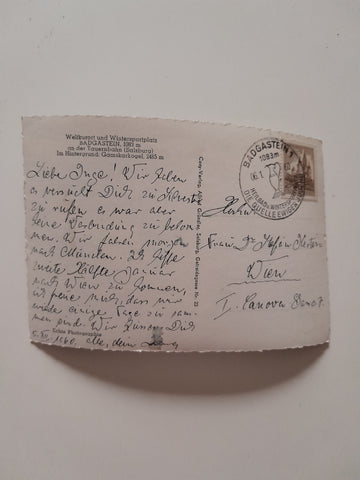 Weltkurort und Wintersportplatz
BADGASTEIN, 1083 m
an der Tauernbahn (Salzburg)
Im Hintergrund: Gamskarkogel, 2465 m
Liebe Inge! Wir haben
es versucht Dich zu
zu rufen es war aber
keine Verbindung zu bekom
men. Wir fahren morgen
nach München. Ich hoffe
zweite Hälfte Januar
nach Wien zu kommen,
ich freue mich, dass wir
wieder einige Tage zusam
men sind. Wir küssen Dich
alle, dein
5. 1960.
Echte Photographie
Cosy-Verlag, Alfred Gründler, Salzburg, Getreidegasse Nr. 22
BADGASTEIN 1
1083m
6.1.
HEILBAD u. WINTERSPORT
DIE QUELLE EWIGER
Frau Dr.
Wien
I. Canova